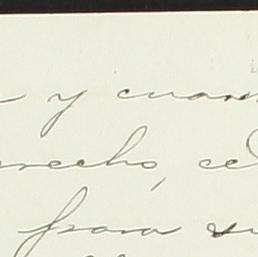 y cuan
erecho, ce
para su